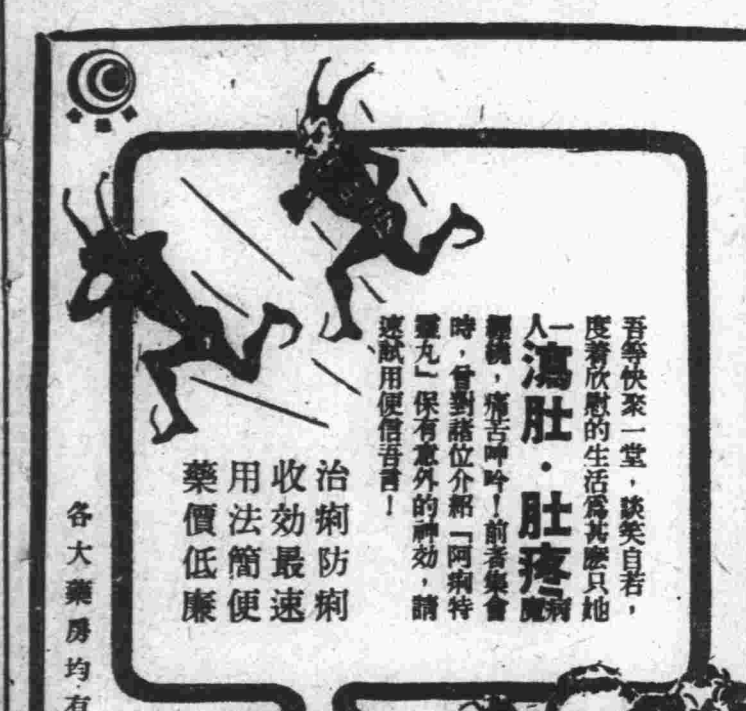 吾等快聚一堂，談笑自若，
度着欣慰的生活爲甚麽只她
一人瀉肚·肚疼病魔
纏繞，痛苦呻吟！前者集會
時，曾對諸位介紹「阿痢特
靈丸」保有意外的神効，請
速試用便信吾言！
治痢防痢
收効最速
用法簡便
藥價低廉
各大藥房均有